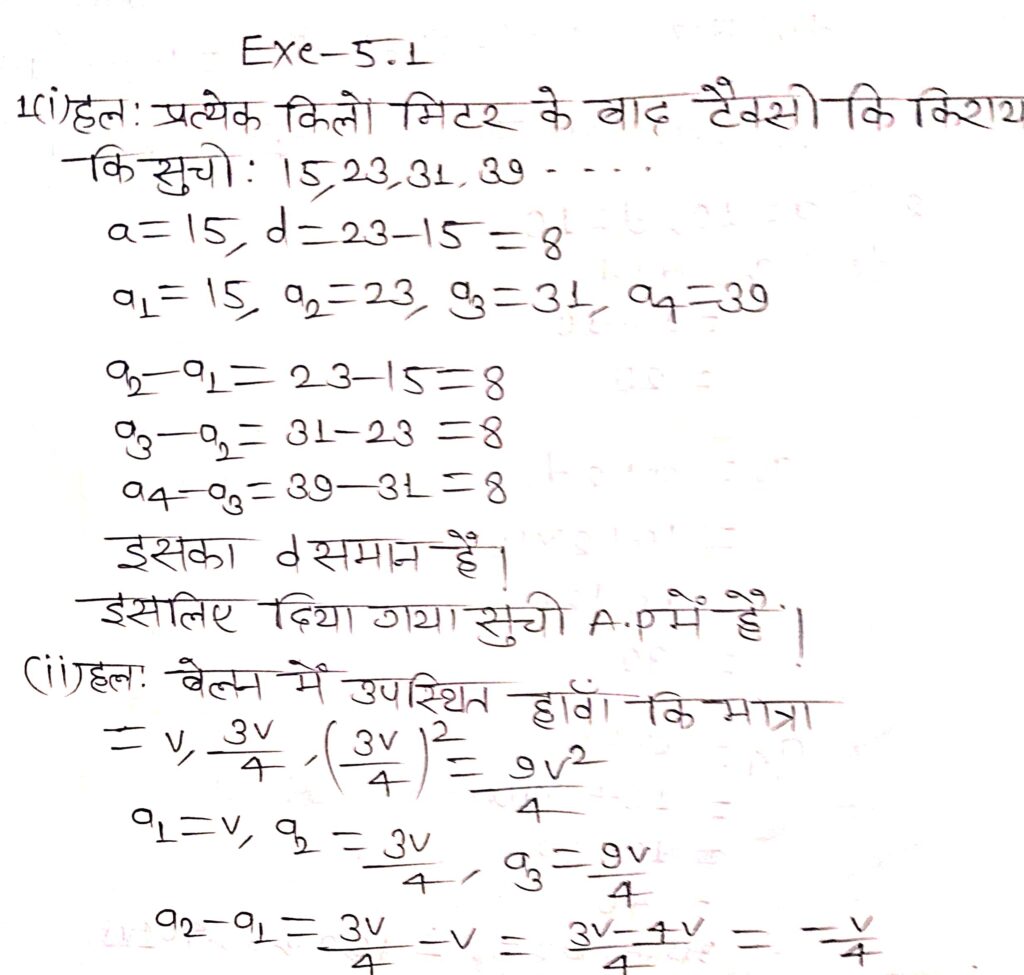 Exe-5.1
1(i)हल: प्रत्येक किलो मिटर के बाद टैक्सी कि किराय
कि सुची: 15,23,31,39 - - - -
a=15, d=23-15=8
a₁=15, a₂=23, a₃=31, a₄=39
a₂-a₁=23-15=8
a₃-a₂=31-23=8
a₄-a₃=39-31=8
इसका d समान हैं।
इसलिए दिया गया सुची A.P में हैं।
(ii)हल: बेलन में उपस्थित हावॉ कि मात्रा
= v, 3v/4, (3v/4)² = 9v²/4
a₁=v, a₂=3v/4, a₃=9v/4
a₂-a₁=3v/4-v = 3v-4v/4 = -v/4